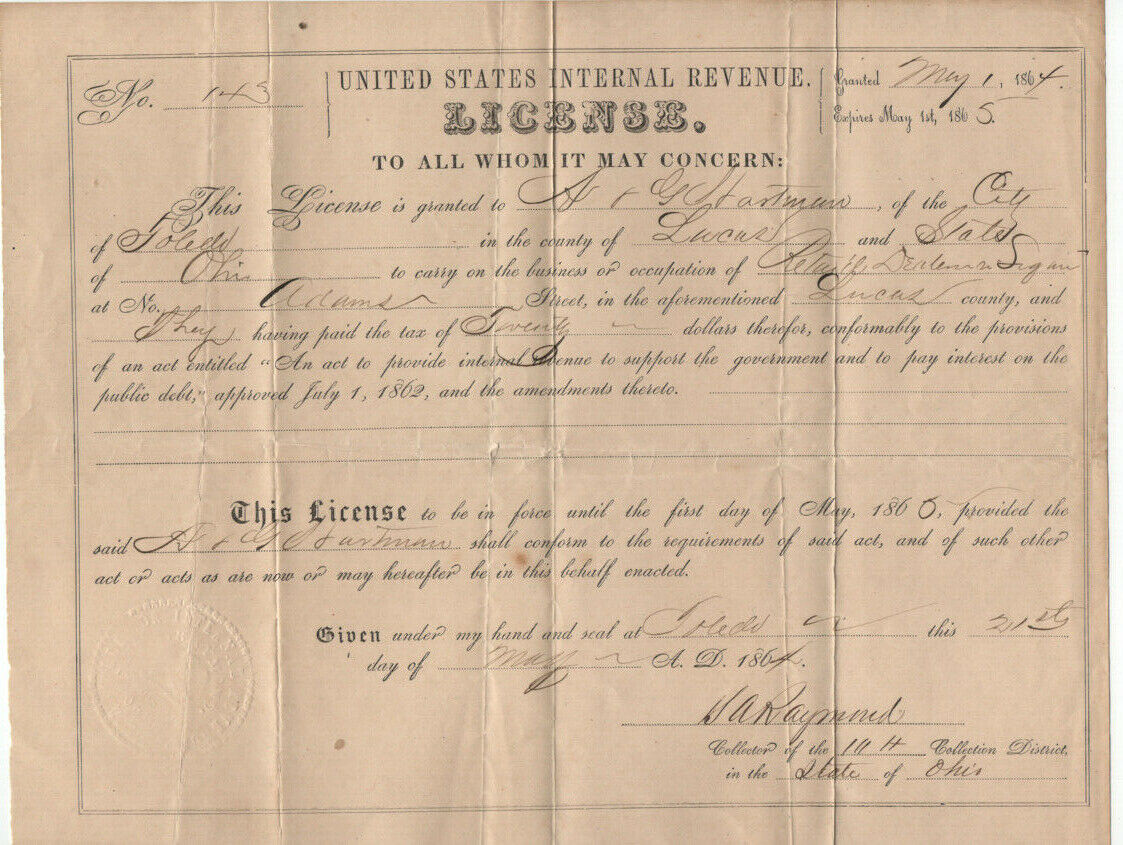 No. 143
UNITED STATES INTERNAL REVENUE.
LICENSE.
Granted May 1, 1864.
Expires May 1st, 1865.
TO ALL WHOM IT MAY CONCERN:
This License is granted to A & G Hartman, of the City
of Toledo in the county of Lucas and State
of Ohio to carry on the business or occupation of Retail Dealer in
at No. Adams Street, in the aforementioned Lucas county, and
They having paid the tax of Twenty dollars therefor, conformably to the provisions
of an act entitled "An act to provide internal revenue to support the government and to pay interest on the
public debt," approved July 1, 1862, and the amendments thereto.
This License to be in force until the first day of May, 1865, provided the
said A & G Hartman shall conform to the requirements of said act, and of such other
act or acts as are now or may hereafter be in this behalf enacted.
Given under my hand and seal at Toledo this 21st
day of May A. D. 1864.
Raymond
Collector of the 10th Collection District,
in the State of Ohio